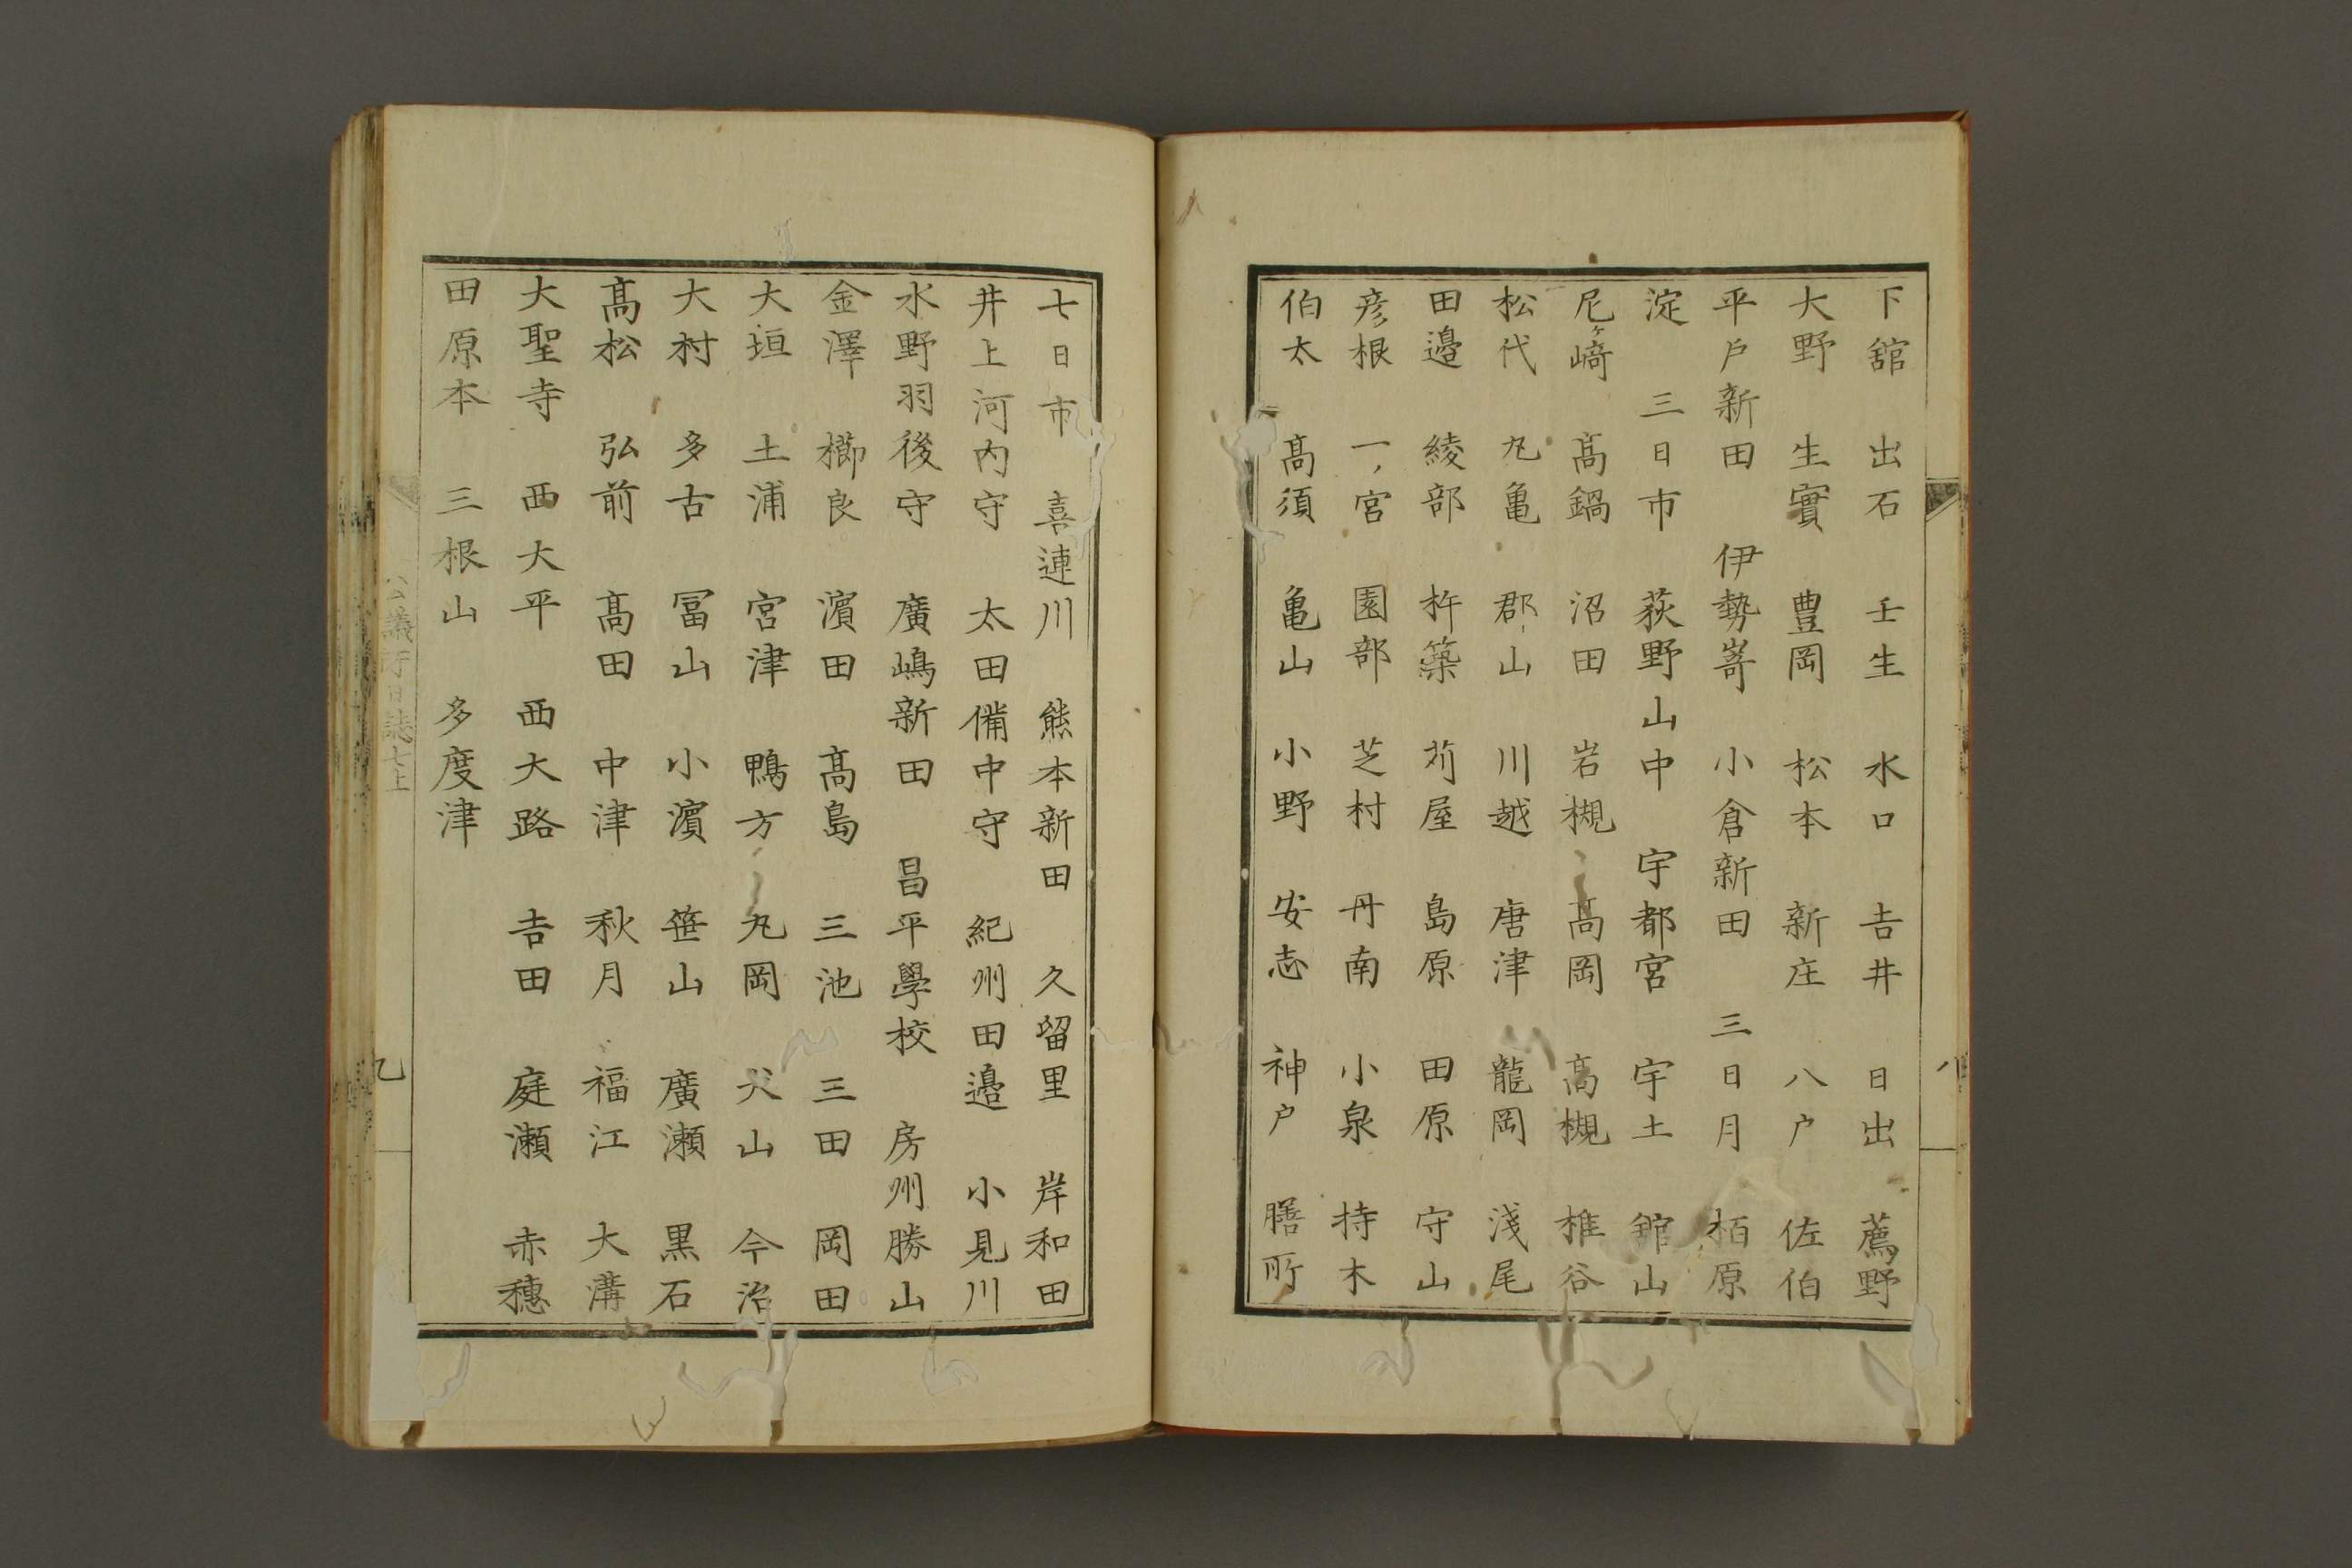 下舘　出石　壬生　水口　吉井　日出　薦野
大野　生實　豊岡　松本　新庄　八戸　佐伯
平戸新田　伊勢嵜　小倉新田　三日月　栢原
淀　三日市　荻野山中　宇都宮　宇土　舘山
尼ヶ﨑　髙鍋　沼田　岩槻　髙岡　髙槻　椎谷
松代　丸亀　郡山　川越　唐津　龍岡　淺尾
田邉　綾部　杵築　苅屋　島原　田原　守山
彦根　一ノ宮　園部　芝村　丹南　小泉　持木
伯太　髙須　亀山　小野　安志　神戸　膳所
八
七日市　喜連川　熊本新田　久留里　岸和田
井上河内守　太田備中守　紀州田邉　小見川
水野羽後守　廣嶋新田　昌平學校　房州勝山
金澤　櫛良　濱田　髙島　三池　三田　岡田
大垣　土浦　宮津　鴨方　丸岡　犬山　今治
大村　多古　冨山　小濵　笹山　廣瀬　黒石
髙松　弘前　髙田　中津　秋月　福江　大溝
大聖寺　西大平　西大路　吉田　庭瀬　赤穗
田原本　三根山　多度津
公議所日誌七上
九